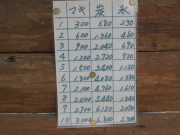 マキ 炭 氷
1 300 680 230
2 600 1.360 460
3 900 2.040 690
4 1.200 2.720 920
5 1.500 3.400 1.150
6 1.800 4.080 1.380
7 2.100 4.760 1.610
8 2.400 5.440 1.840
9 2.700 6.120 2.070
10 3.000 6.800 2.300